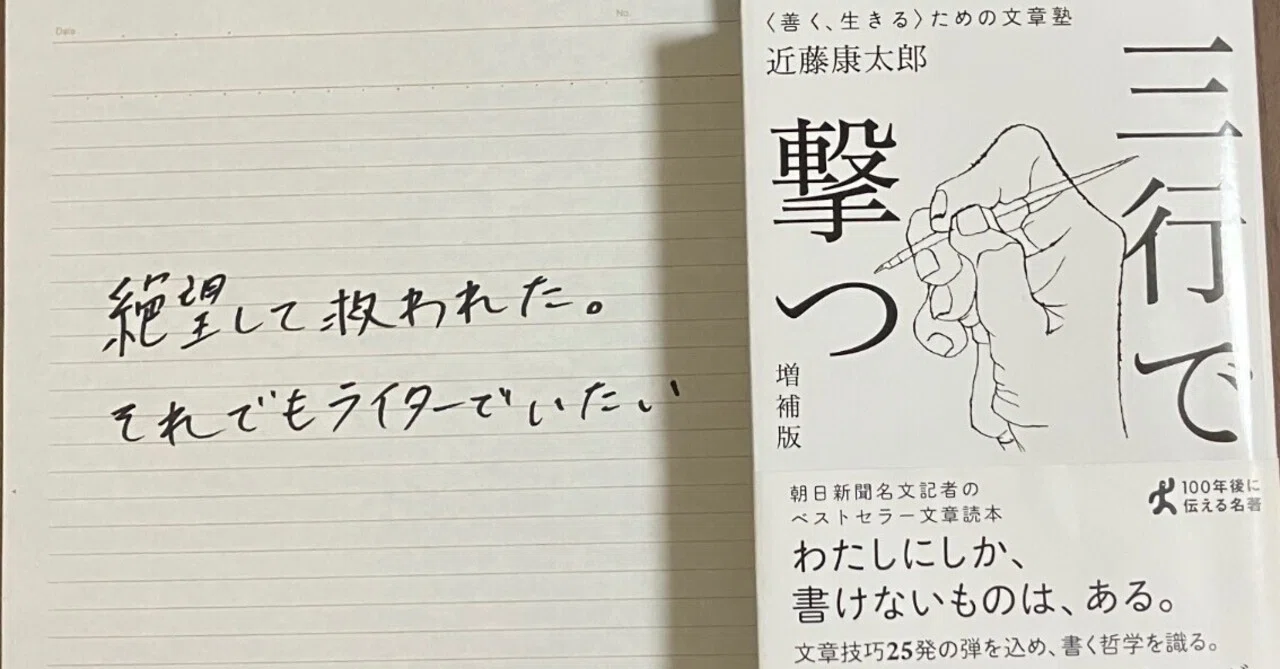 Date
No.
絶望して救われた。
それでもライターでいたい
〈善く、生きる〉ための文章塾
近藤康太郎
三行で
撃つ
増補版
朝日新聞名文記者の
ベストセラー文章読本
100年後に
伝える名著
わたしにしか、
書けないものは、ある。
文章技巧25発の弾を込め、書く哲学を識る。